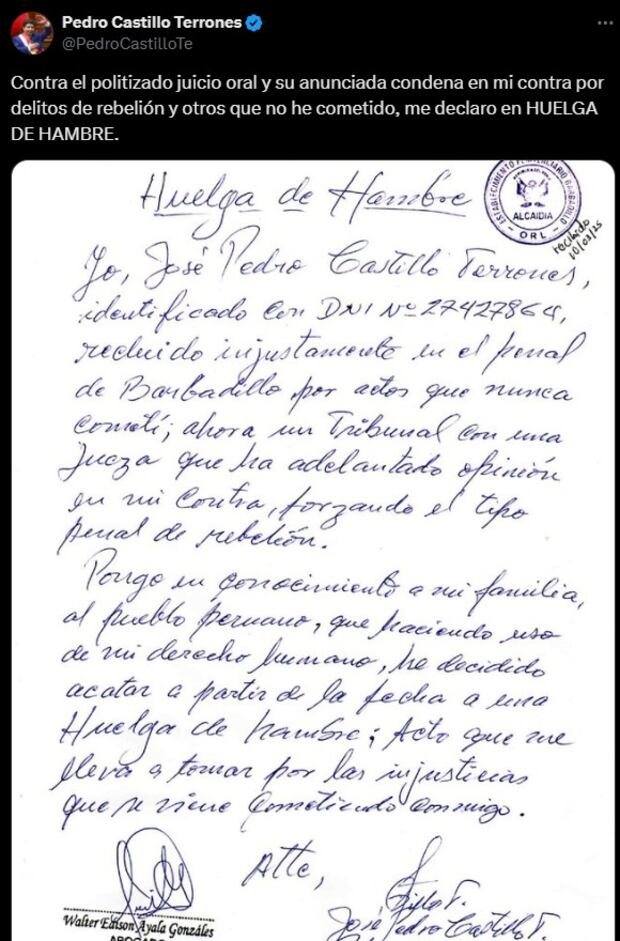 Pedro Castillo Terrones
@PedroCastilloTe
Contra el politizado juicio oral y su anunciada condena en mi contra por
delitos de rebelión y otros que no he cometido, me declaro en HUELGA
DE HAMBRE.
Huelga de Hambre
ESTABLECIMIENTO PENITENCIARIO BARBADILLO
ALCAIDIA
- ORL -
recibido
10/03/25
Yo, José Pedro Castillo Terrones,
identificado con DNI Nº 27427864,
recluido injustamente en el penal
de Barbadillo por actos que nunca
cometí; ahora un Tribunal con una
Jueza que ha adelantado opinión
en mi contra, forzando el tipo
penal de rebelión.
Pongo en conocimiento a mi familia,
al pueblo peruano, que haciendo uso
de mi derecho humano, he decidido
acatar a partir de la fecha a una
Huelga de hambre; Acto que me
lleva a tomar por las injusticias
que se viene cometiendo conmigo.
Atte,
Walter Edison Ayala Gonzáles
José Pedro Castillo T.